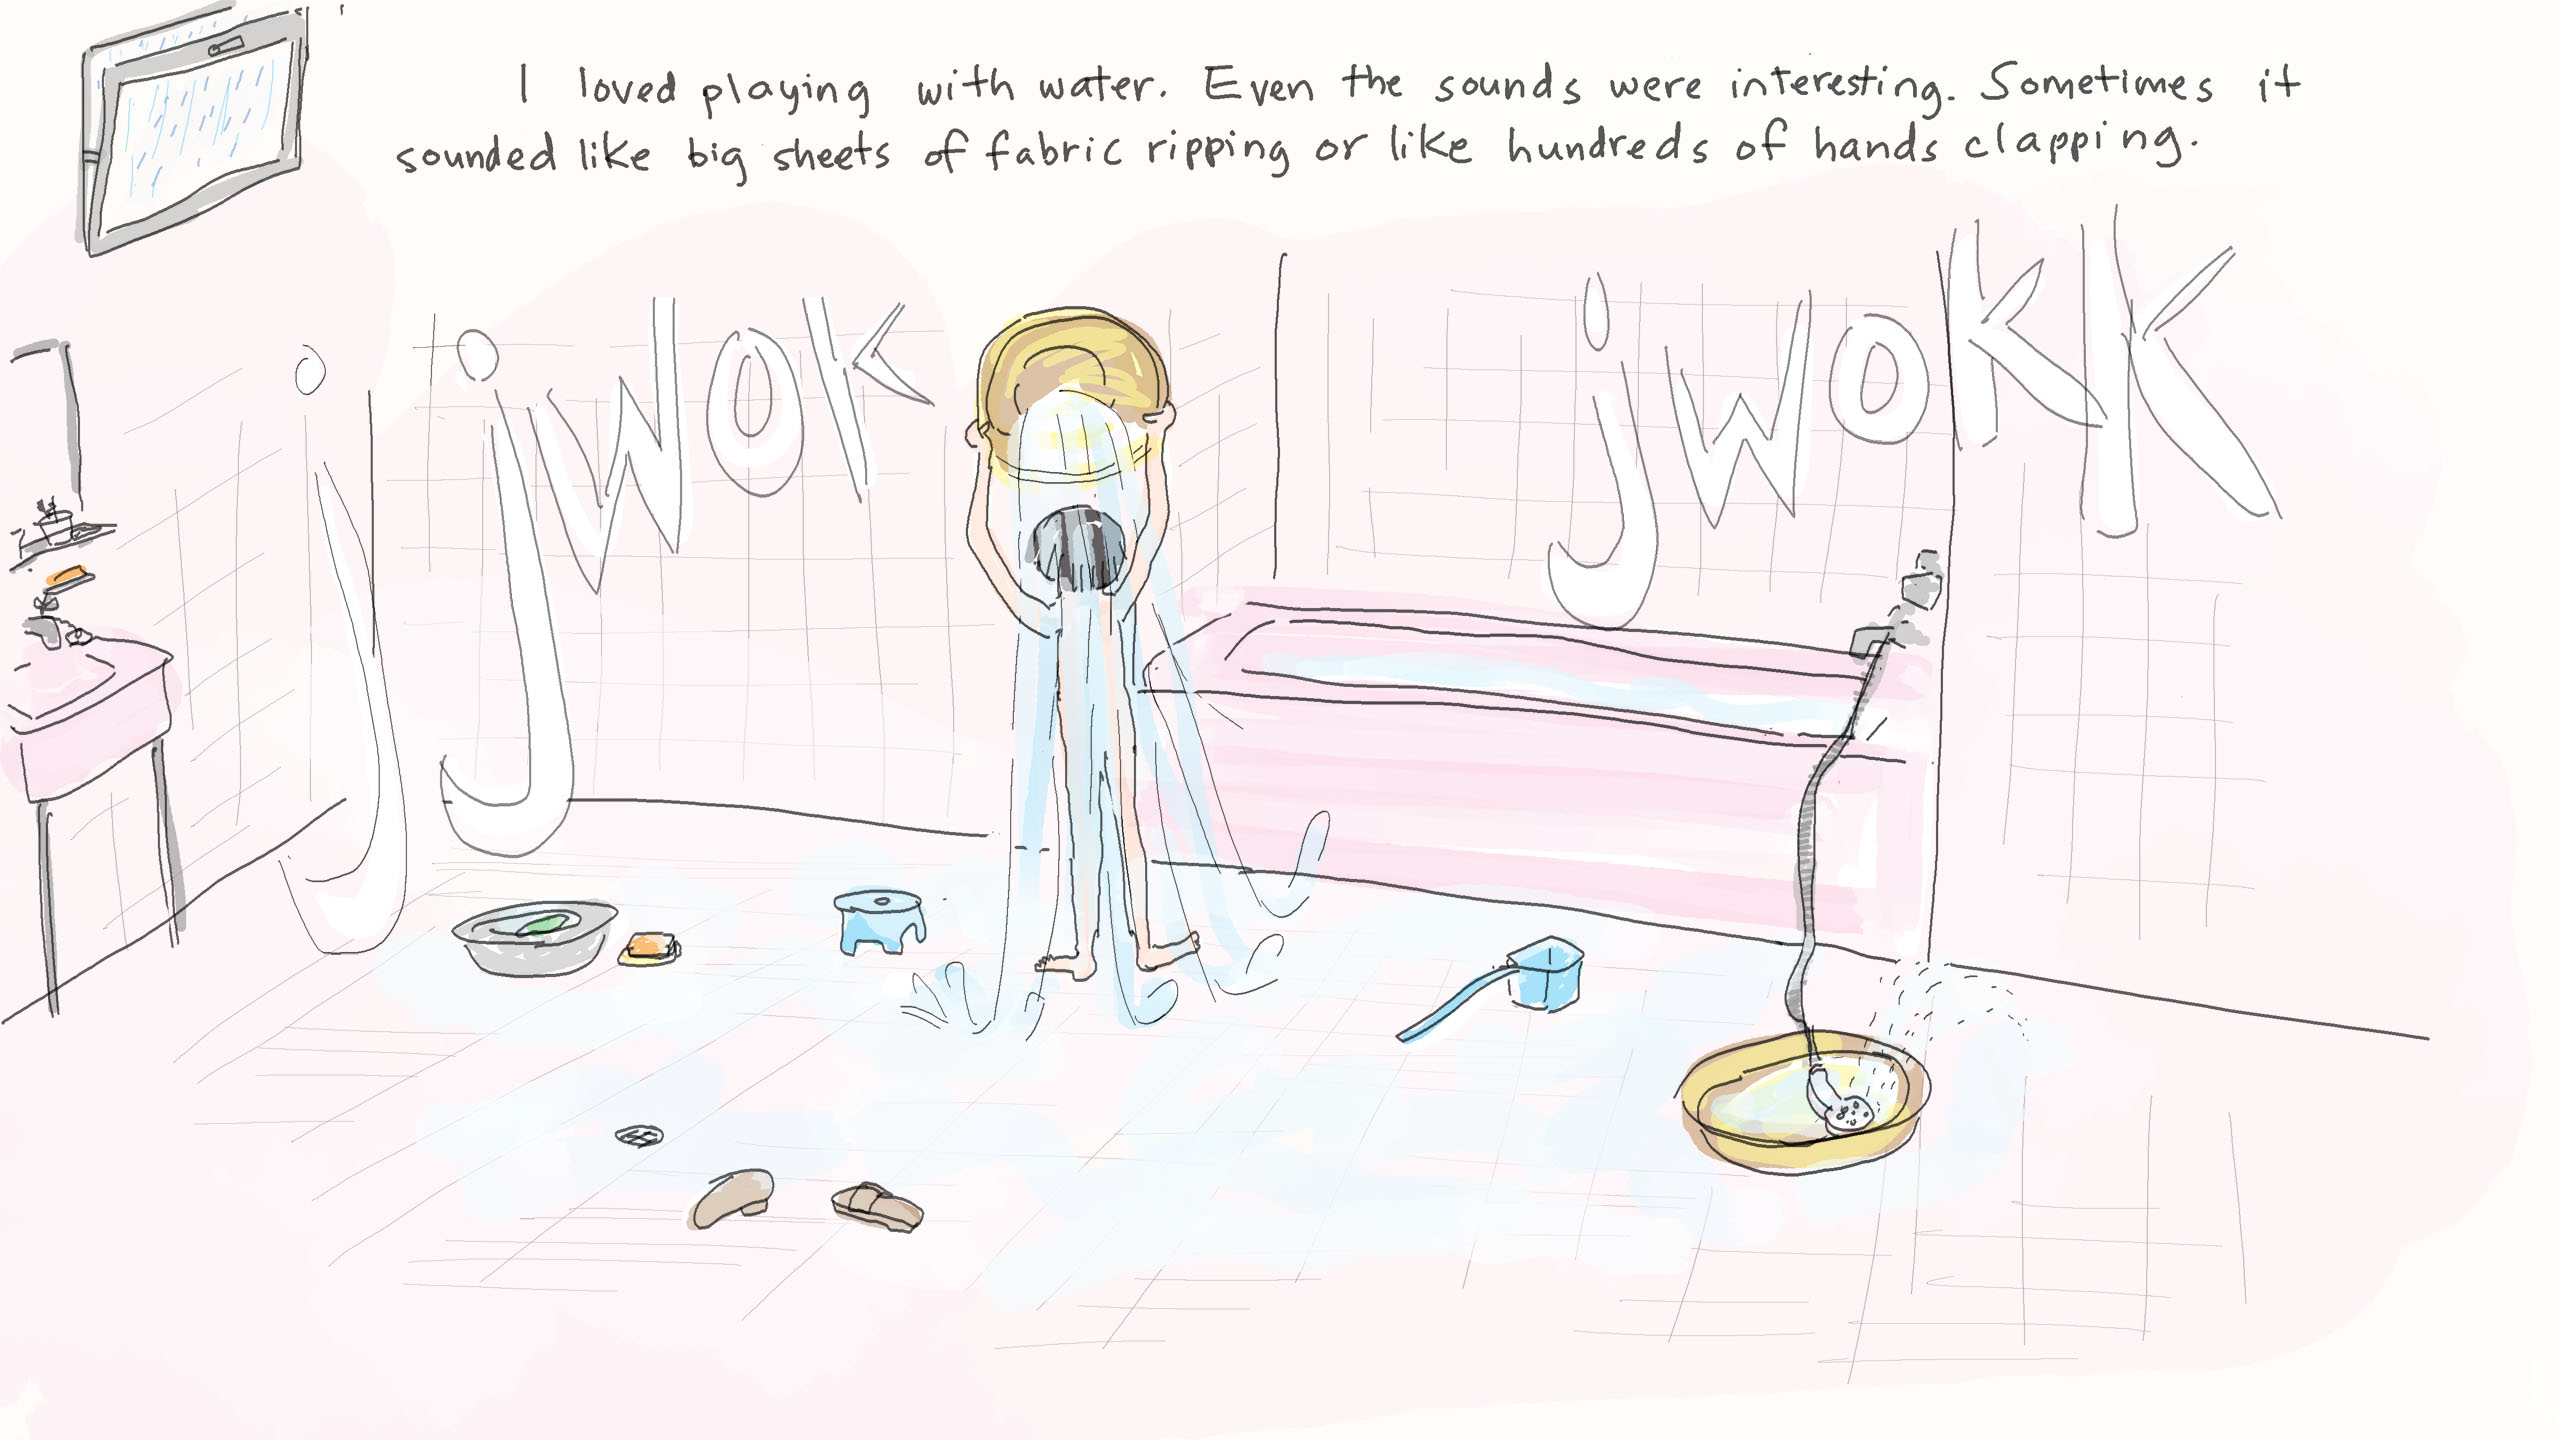 I loved playing with water. Even the sounds were interesting. Sometimes it
sounded like big sheets of fabric ripping or like hundreds of hands clapping.
jjwok
jwokK